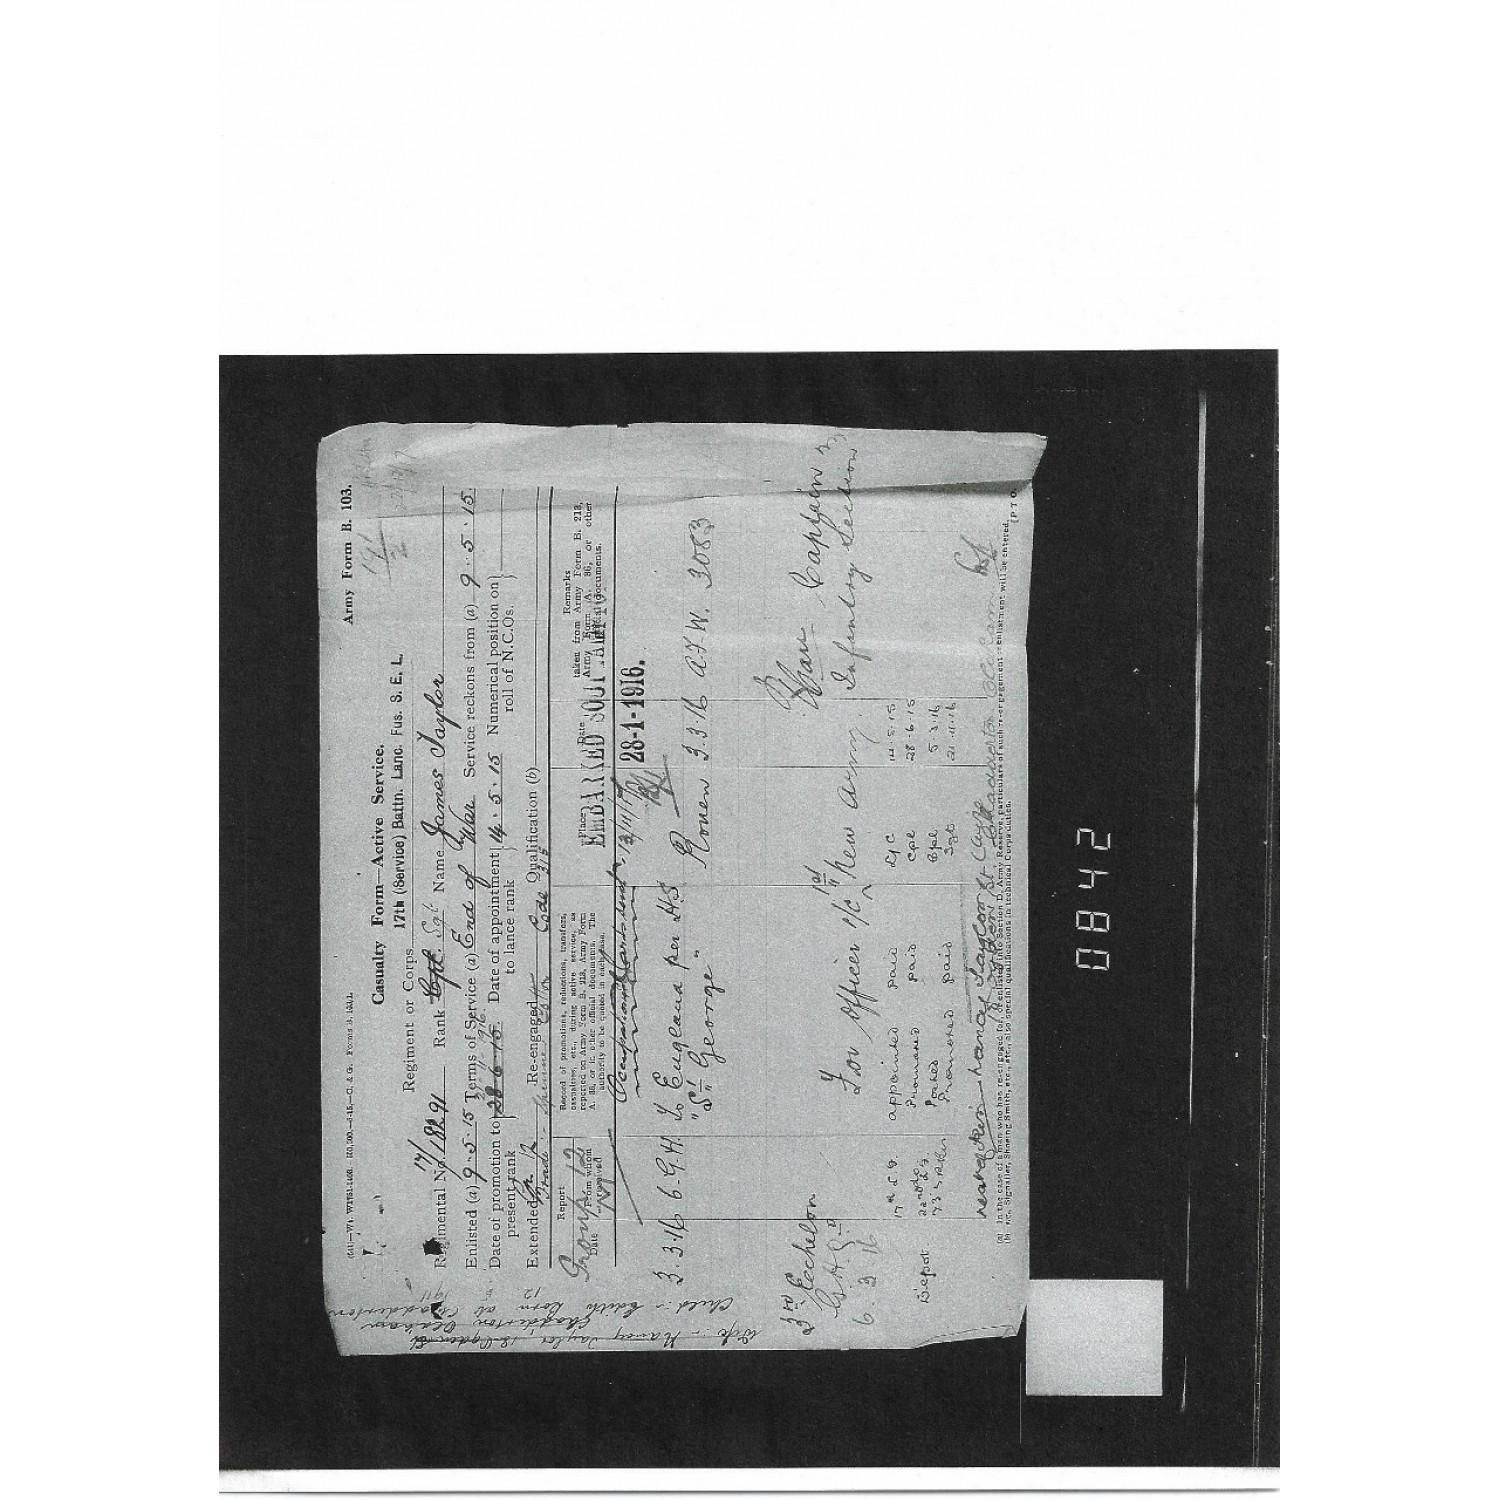 (641)
Army Form B. 103.
Casualty Form—Active Service.
Regiment or Corps 17th (Service) Battn. Lanc. Fus. S. E. L.
Regimental No. 17/18291 Rank Cpl. Sgt Name James Taylor
Enlisted (a) 9.5.15 Terms of Service (a) End of War Service reckons from (a) 9.5.15
Date of promotion to present rank 28.6.15 Date of appointment to lance rank 14.5.15 Numerical position on roll of N.C.Os.
Extended Re-engaged Qualification (b)
Report
Date From whom received
Record of promotions, reductions, transfers, casualties, etc., during active service, as reported on Army Form B. 213, Army Form A. 36, or in other official documents. The authority to be quoted in each case.
Place
Date
Remarks taken from Army Form B. 213, Army Form A. 36, or other official documents.
Group 12
EMBARKED
28-1-1916.
3.3.16 6.G.H. To England per H.S. Rouen 3.3.16 A.F.W. 3083
"St George"
3rd Echelon
G.H.Q.
6.3.16
Captain
For Officer i/c 1st New Army Infantry Section
17th L.F. appointed paid L/C 14.5.15
Promoted paid Cpl 28.6.15
Depot Posted Cpl 5.3.16
Promoted paid Sgt 21.11.16
next of kin nancy
(a) In the case of a man who has re-engaged for, or enlisted into Section D, Army Reserve, particulars of such re-engagement or enlistment will be entered.
(b) e.g., Signaller, Shoeing Smith, etc., etc., also special qualifications in technical Corps duties.
[P T O.
Wife :- Nancy Taylor, 18 Ogden St Chadderton Oldham
Child :- Edith Born at Chadderton
0842